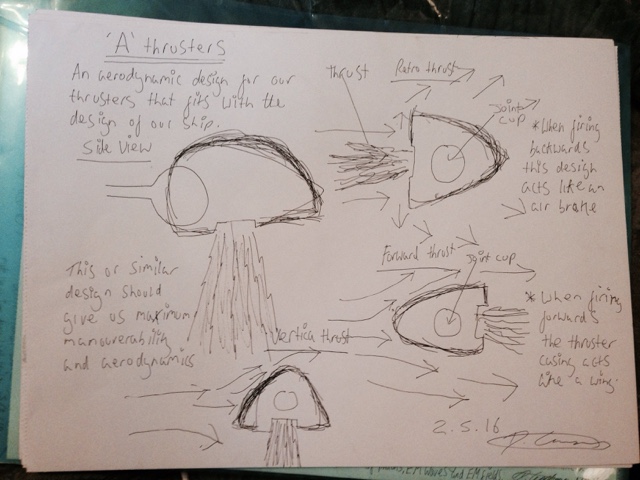 'A' thrusters
An aerodynamic design for our
thrusters that fits with the
design of our ship.
Side View
This or similar
design should
give us maximum
manouverability
and aerodynamics
Thrust
Retro thrust
Joint
cup
*When firing
backwards
this design
acts like an
air brake
Forward thrust
Joint cup
* When firing
forwards
the thruster
casing acts
like a wing.
Vertical thrust
2.5.16